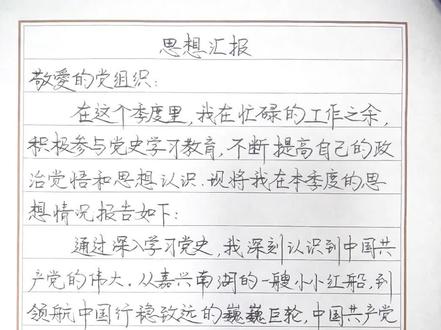 思想汇报
敬爱的党组织：
在这个季度里，我在忙碌的工作之余，
积极参与党史学习教育，不断提高自己的政
治觉悟和思想认识。现将我在本季度的思
想情况报告如下：
通过深入学习党史，我深刻认识到中国共
产党的伟大。从嘉兴南湖的一艘小小红船，到
领航中国行稳致远的巍巍巨轮，中国共产党